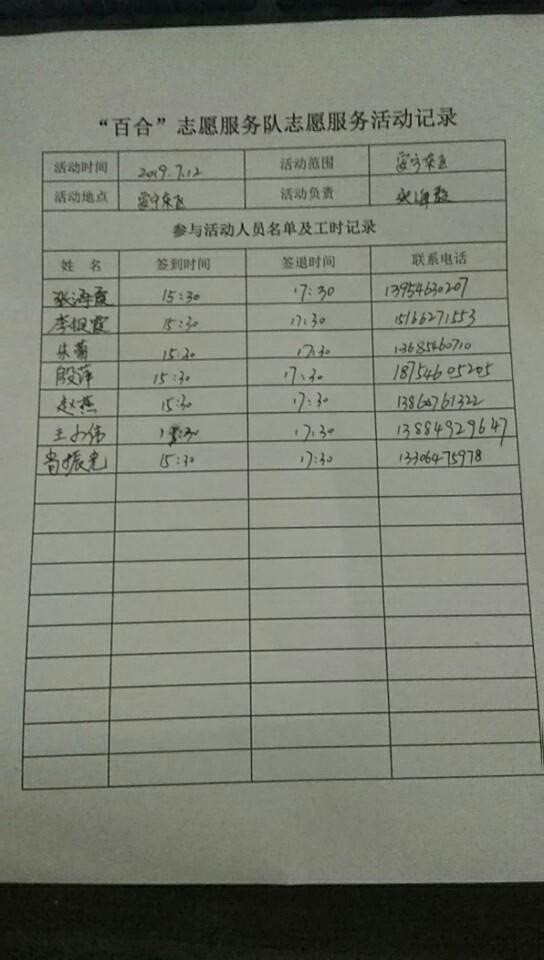 “百合”志愿服务队志愿服务活动记录
活动时间 2019.7.12 活动范围 安宁东区
活动地点 安宁东区 活动负责 张海霞
参与活动人员名单及工时记录
姓 名 签到时间 签退时间 联系电话
张海霞 15:30 17:30 13954630207
李银霞 15:30 17:30 15166271553
朱蕾 15:30 17:30 13685460710
殷萍 15:30 17:30 18754605205
赵燕 15:30 17:30
王小伟 15:30 17:30 13884929647
振光 15:30 17:30 13306475978